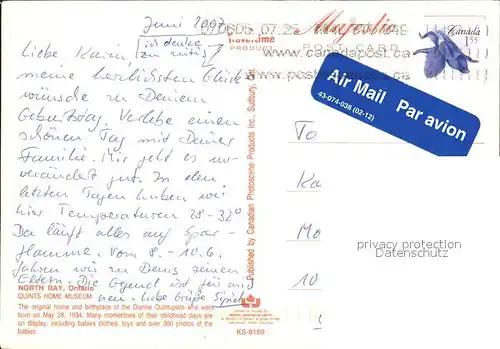 Juni 2007
Liebe Karin, (ich denke
zu zeitig)
meine herzlichsten Glück
wünsche zu Deinem
Geburtstag. Verlebe einen
schönen Tag mit Deiner
Familie. Mir geht es un-
verändert gut. In den
letzten Tagen haben wir
hier Temperaturen 28-32°
Da läuft alles auf Spar-
flamme. Vom 8. - 10.6.
fahren wir zu Denis seinen
Eltern. Die Gegend ist für mich
neu. Liebe Grüße
NORTH BAY, Ontario
QUINTS HOME MUSEUM
The original home and birthplace of the Dionne Quintuplets who were
born on May 28, 1934. Many momentoes of their childhood days are
on display, including babies clothes, toys and over 300 photos of the
babies.
Published by Canadian Photoscene Products Inc., Sudbury, Ont.
KS-8168
PRODUCT
Majestic
POST CARD
070605 07:25
www.canadapost.ca
www.postescanada.ca
Canada
155
Air Mail Par avion
43-074-038 (02-12)
To
Ka
Mo
10
privacy protection
Datenschutz